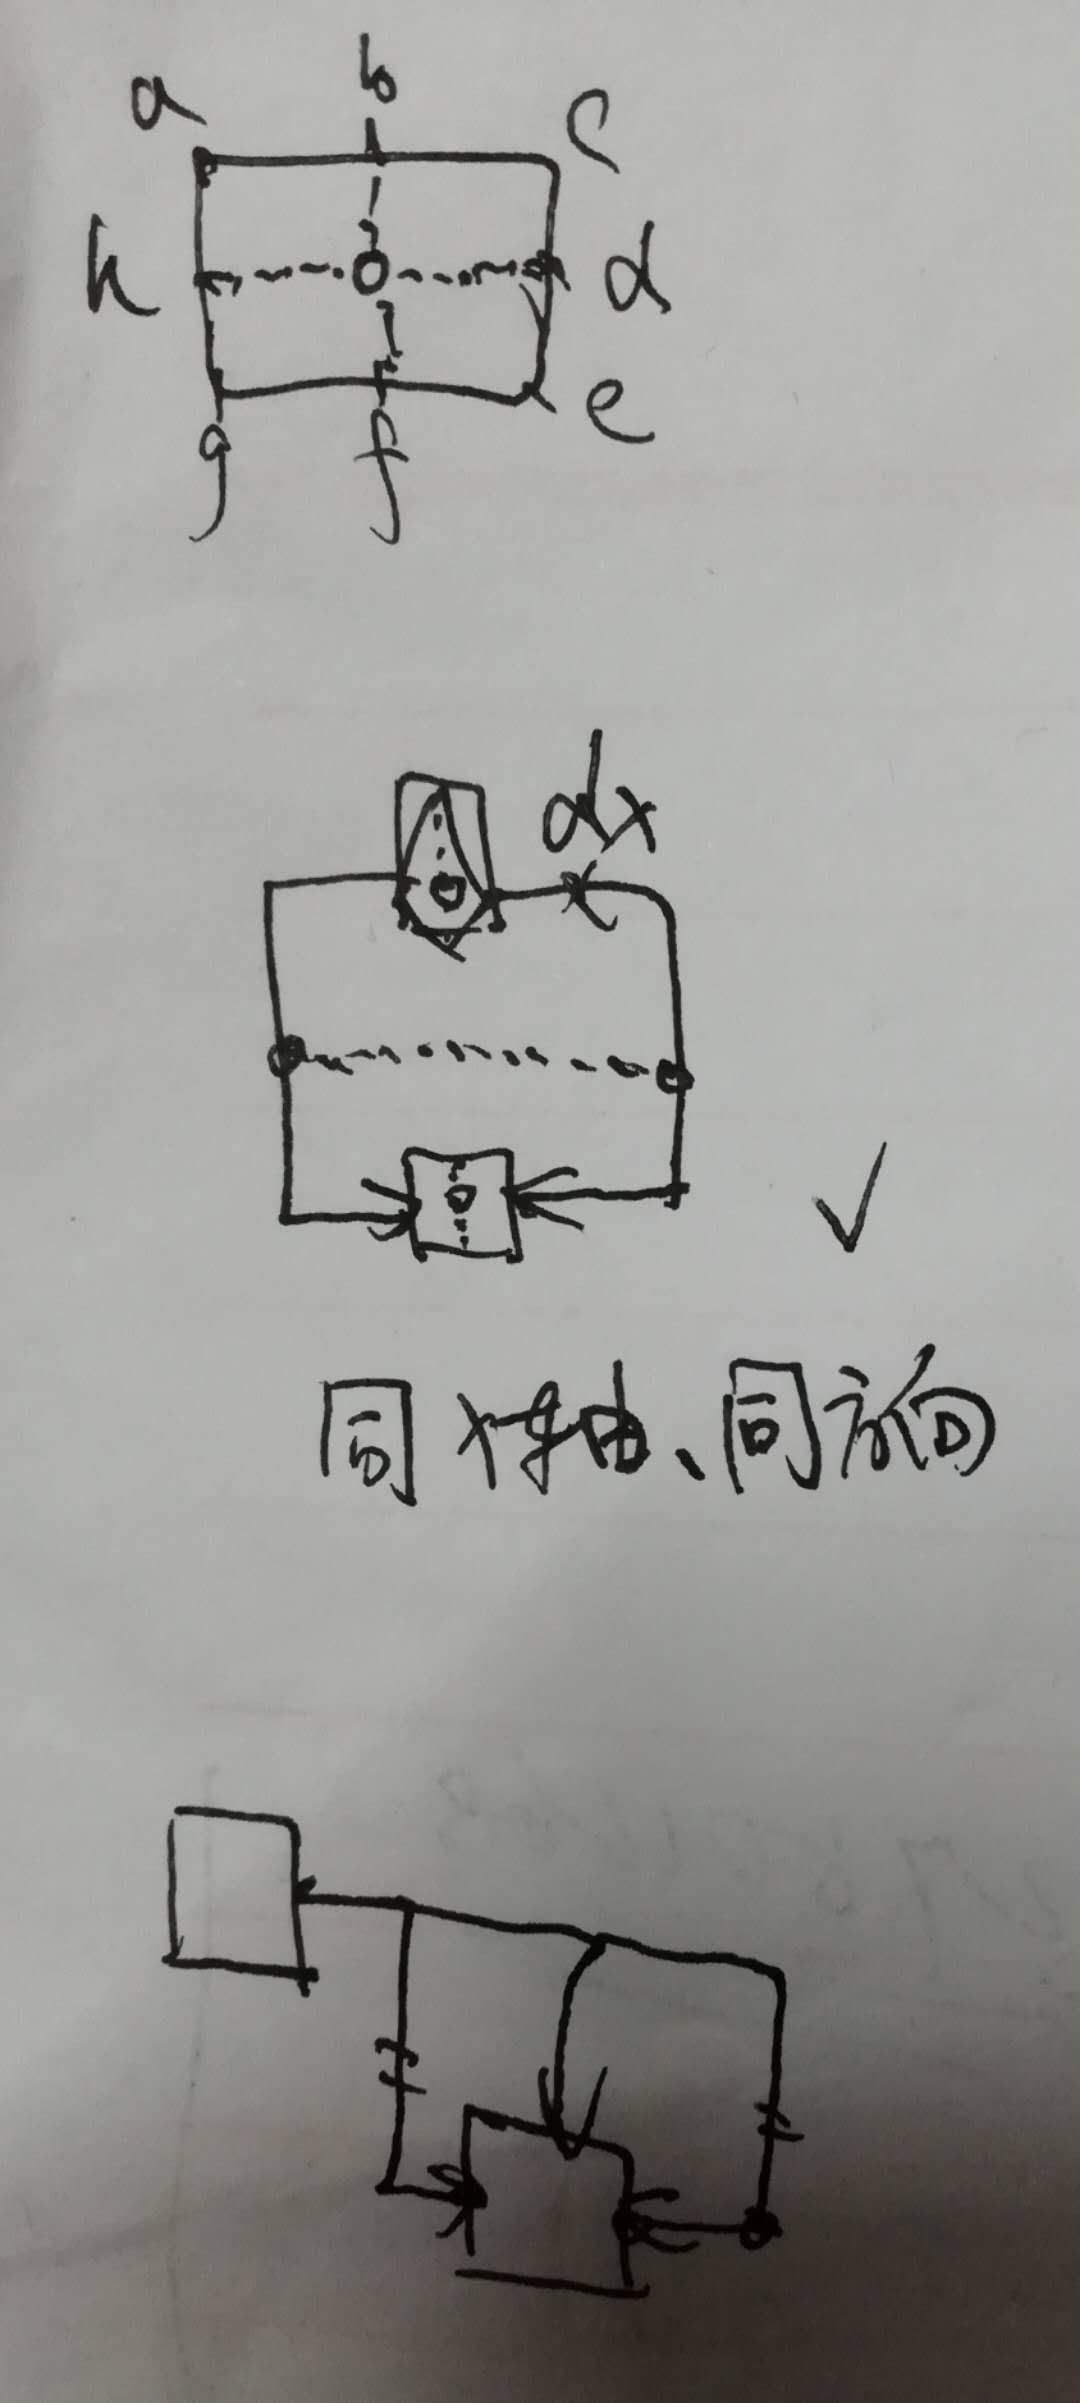 a b c
h d
g f e
dx
同对轴、同方向